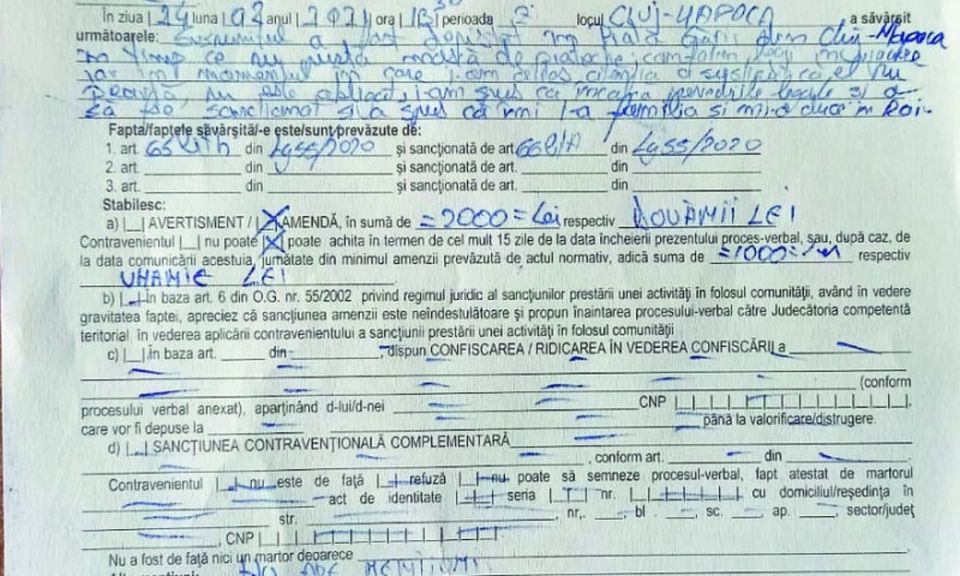 În ziua |24 luna |02 anul |2021| ora | |perioada locul CLUJ-NAPOCA a săvârşit
următoarele: Susnumitul a fost depistat în Piața Gării din Cluj-Napoca
în timp ce nu purta mască de protecție
iar în momentul în care i-am
nu este obligat, i-am spus că încalcă prevederile legale și a
să fie sancționat și a spus că familia și mi-o
Fapta/faptele săvârşită/-e este/sunt prevăzute de:
1. art. 65 lit h din L 55/2020 şi sancţionată de art. 66 lit A din L 55/2020
2. art. din şi sancţionată de art. din
3. art. din şi sancţionată de art. din
Stabilesc:
a) |_| AVERTISMENT / |X| AMENDĂ, în sumă de =2000= Lei respectiv DOUĂMII LEI
Contravenientul |_| nu poate |X| poate achita în termen de cel mult 15 zile de la data încheierii prezentului proces-verbal, sau, după caz, de
la data comunicării acestuia, jumătate din minimul amenzii prevăzută de actul normativ, adică suma de =1000= respectiv
UNAMIE LEI
b) |_| în baza art. 6 din O.G. nr. 55/2002 privind regimul juridic al sancţiunilor prestării unei activităţi în folosul comunităţii, având în vedere
gravitatea faptei, apreciez că sancţiunea amenzii este neîndestulătoare şi propun înaintarea procesului-verbal către Judecătoria competentă
teritorial în vederea aplicării contravenientului a sancţiunii prestării unei activităţi în folosul comunităţii
c) |_| în baza art. din , dispun CONFISCAREA / RIDICAREA ÎN VEDEREA CONFISCĂRII a
(conform
procesului verbal anexat), aparţinând d-lui/d-nei CNP
care vor fi depuse la până la valorificare/distrugere.
d) |_| SANCŢIUNEA CONTRAVENŢIONALĂ COMPLEMENTARĂ
, conform art. din
Contravenientul |_| nu este de faţă |_| refuză |_| nu poate să semneze procesul-verbal, fapt atestat de martorul
act de identitate seria nr. cu domiciliul/reşedinţa în
str. , nr. , bl. , sc. , ap. , sector/judeţ
, CNP
Nu a fost de faţă nici un martor deoarece
NU ARE MENȚIUNI